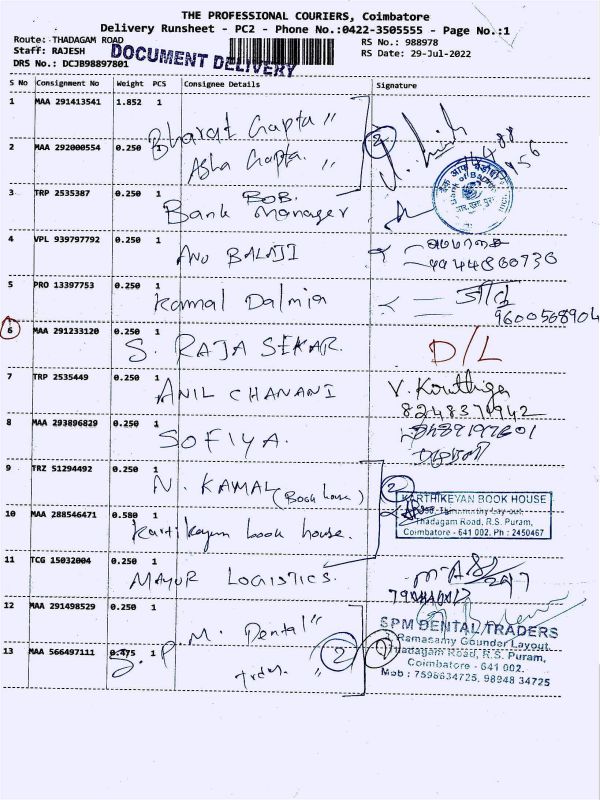 THE PROFESSIONAL COURIERS, Coimbatore
Delivery Runsheet - PC2 - Phone No.:0422-3505555 - Page No.:1
Route: THADAGAM ROAD RS No.: 988978
Staff: RAJESH DOCUMENT DELIVERY RS Date: 29-Jul-2022
DRS No.: DCJB98897801
S No Consignment No Weight PCS Consignee Details Signature
1 MAA 291413541 1.852 1 Bharat Gupta "
2 MAA 292000554 0.250 1 Asha Gupta. " 2
3 TRP 2535387 0.250 1 BOB. Bank Manager
Bank of Baroda
4 VPL 939797792 0.250 1 ANU BALAJI
9944860730
5 PRO 13397753 0.250 1 Kamal Dalmia
9600568904
6 MAA 291233120 0.250 1 S. RAJA SEKAR. D/L
7 TRP 2535449 0.250 1 ANIL CHANANI V. Kowthiga
8248370942
8 MAA 293896829 0.250 1 SOFIYA.
9 TRZ 51294492 0.250 1 N. KAMAL (Book house) 2
10 MAA 288546471 0.580 1 Kartikeyan book house.
KARTHIKEYAN BOOK HOUSE
Thadagam Road, R.S. Puram,
Coimbatore - 641 002. Ph : 2450467
11 TCG 15032004 0.250 1 MAYUR LOGISTICS.
12 MAA 291498529 0.250 1
13 MAA 566497111 0.475 1 S. P. M. Dental " 2 1
SPM DENTAL TRADERS
Ramasamy Gounder Layout,
Thadagam Road, R.S. Puram,
Coimbatore - 641 002.
Mob : 7598634725, 98948 34725